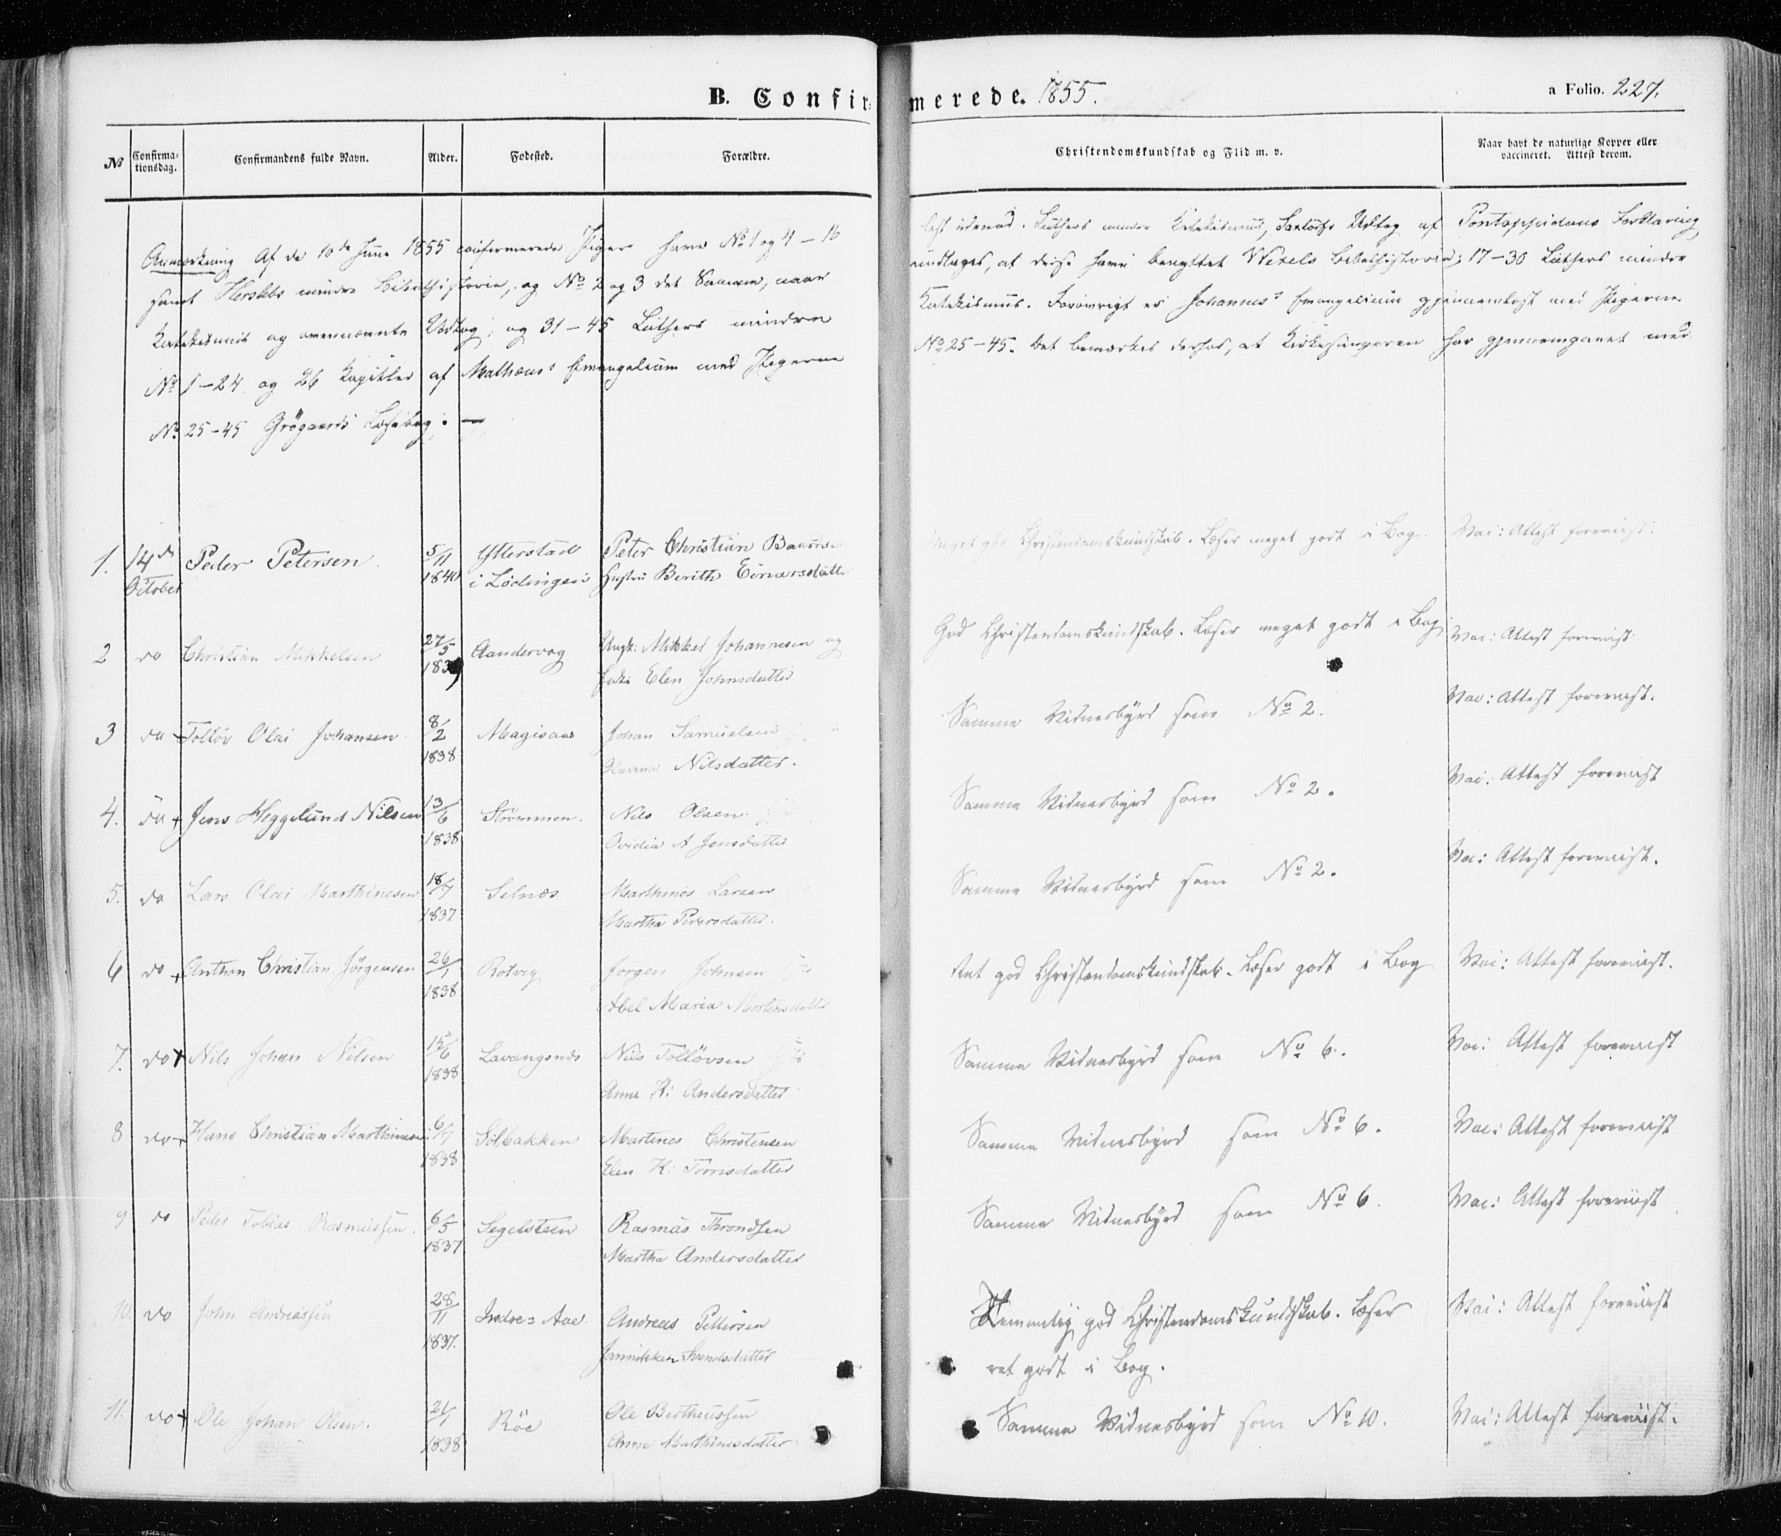 B. Confirmerede. 1855. a Folio. 227.
No Confirmationsdag. Confirmandens fulde Navn. Alder. Fødested. Forældre. Christendomskundskab og Flid m. v. Naar havt de naturlige Kopper eller vaccineret. Attest derom.
Anmærkning Af de 10de Juni 1855 confirmerede Piger have No 1 og 4 – 16 læst udenad. Luthers mindre Katekismus, Udtog af Pontoppidans Forklaring
samt Herslebs mindre Bibelhistorie, og No 2 og 3 det Samme, naar undtages, at disse have benyttet Wexels Bibelhistorie; 17–30 Luthers mindre
Katekismus og ovennævnte Udtog; og 31–45 Luthers mindre Katekismus. Forøvrigt er Johannes's Evangelium gjennemlæst med Pigerne
No 1–24 og 26 Kapitler af Mathæus's Evangelium med Pigerne No 25–45. Det bemærkes derhos, at Kirkesangeren har gjennemgaaet med
No 25–45 Grøgaards Læsebog. —
1. 14de October Peder Petersen. 5/11 1840 Ytterstad i Lødingen Peter Christian Hustru Berith Einarsdatter Meget god Christendomskundskab. Læser meget godt i Bog. Vac: Attest foreviist.
2 do Christian Mikkelsen 27/5 1839 Sandervog Ungk: Mikkel Johannesen og Elen Johnsdatter God Christendomskundskab. Læser meget godt i Bog Vac: Attest foreviist.
3 do Tollöv Olai Johansen 8/2 1838 Magisaas Johan Samuelsen Olavina Nilsdatter. Samme Vidnesbyrd som No 2. Vac: Attest foreviist.
4. do + Jens Heggelund Nilsen 13/6 1838 Strömmen. Nils Olsen. Ovidia A Jensdatter Samme Vidnesbyrd som No 2. Vac. Attest foreviist
5. do Lars Olai Marthinesen 18/7 1837 Selnæs Marthines Larsen Martha Pedersdatter. Samme Vidnesbyrd som No 2. Vac: Attest foreviist.
6 do + Anthon Christian Jörgensen 26/1 1838 Rotvig Jorgen Johnsen Abel Maria Mortensdatter Ret god Christendomskundskab. Læser godt i Bog Vac: Attest foreviist.
7. do + Nils Johan Nilsen 15/6 1838 Lavangsnæs Nils Tollövsen Anne K: Andersdatter Samme Vidnesbyrd som No 6. Vac: Attest foreviist
8 do + Hans Christian Marthinesen 6/7 1838 Solbakken Martines Christensen Elen K: Torrisdatter Samme Vidnesbyrd som No 6. Vac: Attest foreviist
9 do Peder Tobias Rasmussen. 6/5 1837 Segelsteen Rasmus Throndsen Martha Andersdatter Samme Vidnesbyrd som No 6. Vac: Attest foreviist
10 do John Andreassen 28/11 1837. Indre= Aae Andreas Pettersen Jannikken Svendsdatter Temmelig god Christendomskundskab. Læser Vac: Attest foreviist
ret godt i Bog.
11. do + Ole Johan Olsen. 21/1 1838 Röe Ole Bertheussen Anne Marthinesdatter Samme Vidnesbyrd som No 10. Vac: Attest foreviist.